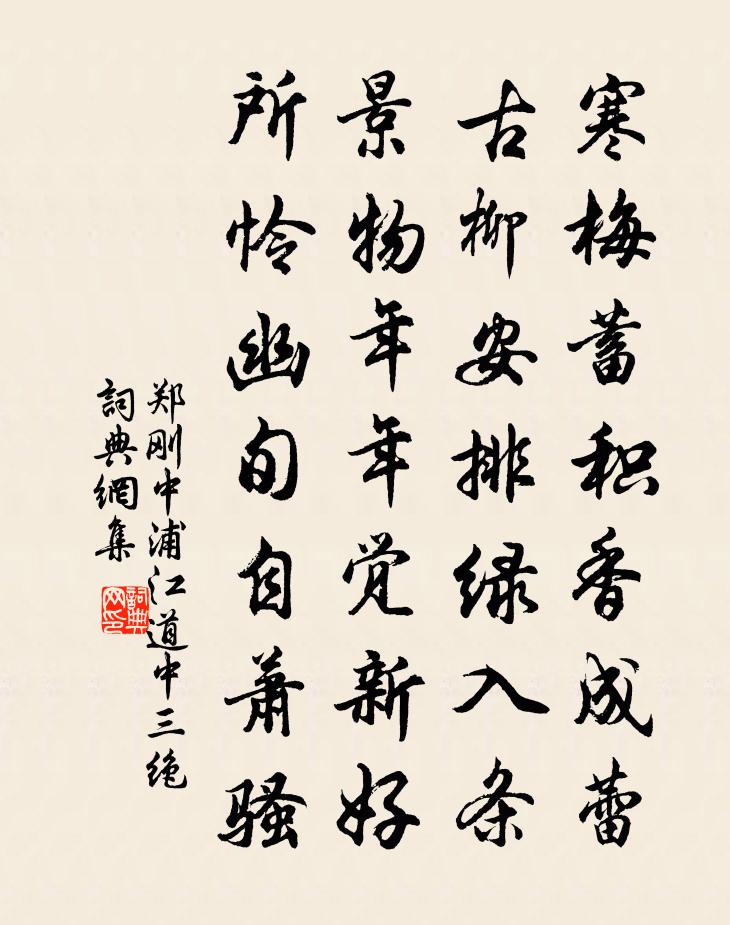 寒梅蓄积香成蕾
古柳安排绿入条
景物年年觉新好
所怜幽旬自萧骚
郑刚中浦江道中三绝
詞典網集
詞典网印